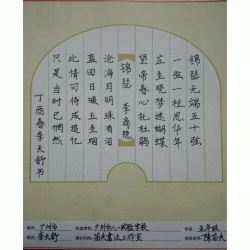 锦瑟无端五十弦
一弦一柱思华年
庄生晓梦迷蝴蝶
望帝春心托杜鹃
锦瑟 李商隐
沧海月明珠有泪
蓝田日暖玉生烟
此情可待成追忆
只是当时已惘然
丁酉春李天舒书
广州市 广州市八一实验学校 五年级
李天舒 书法工作室